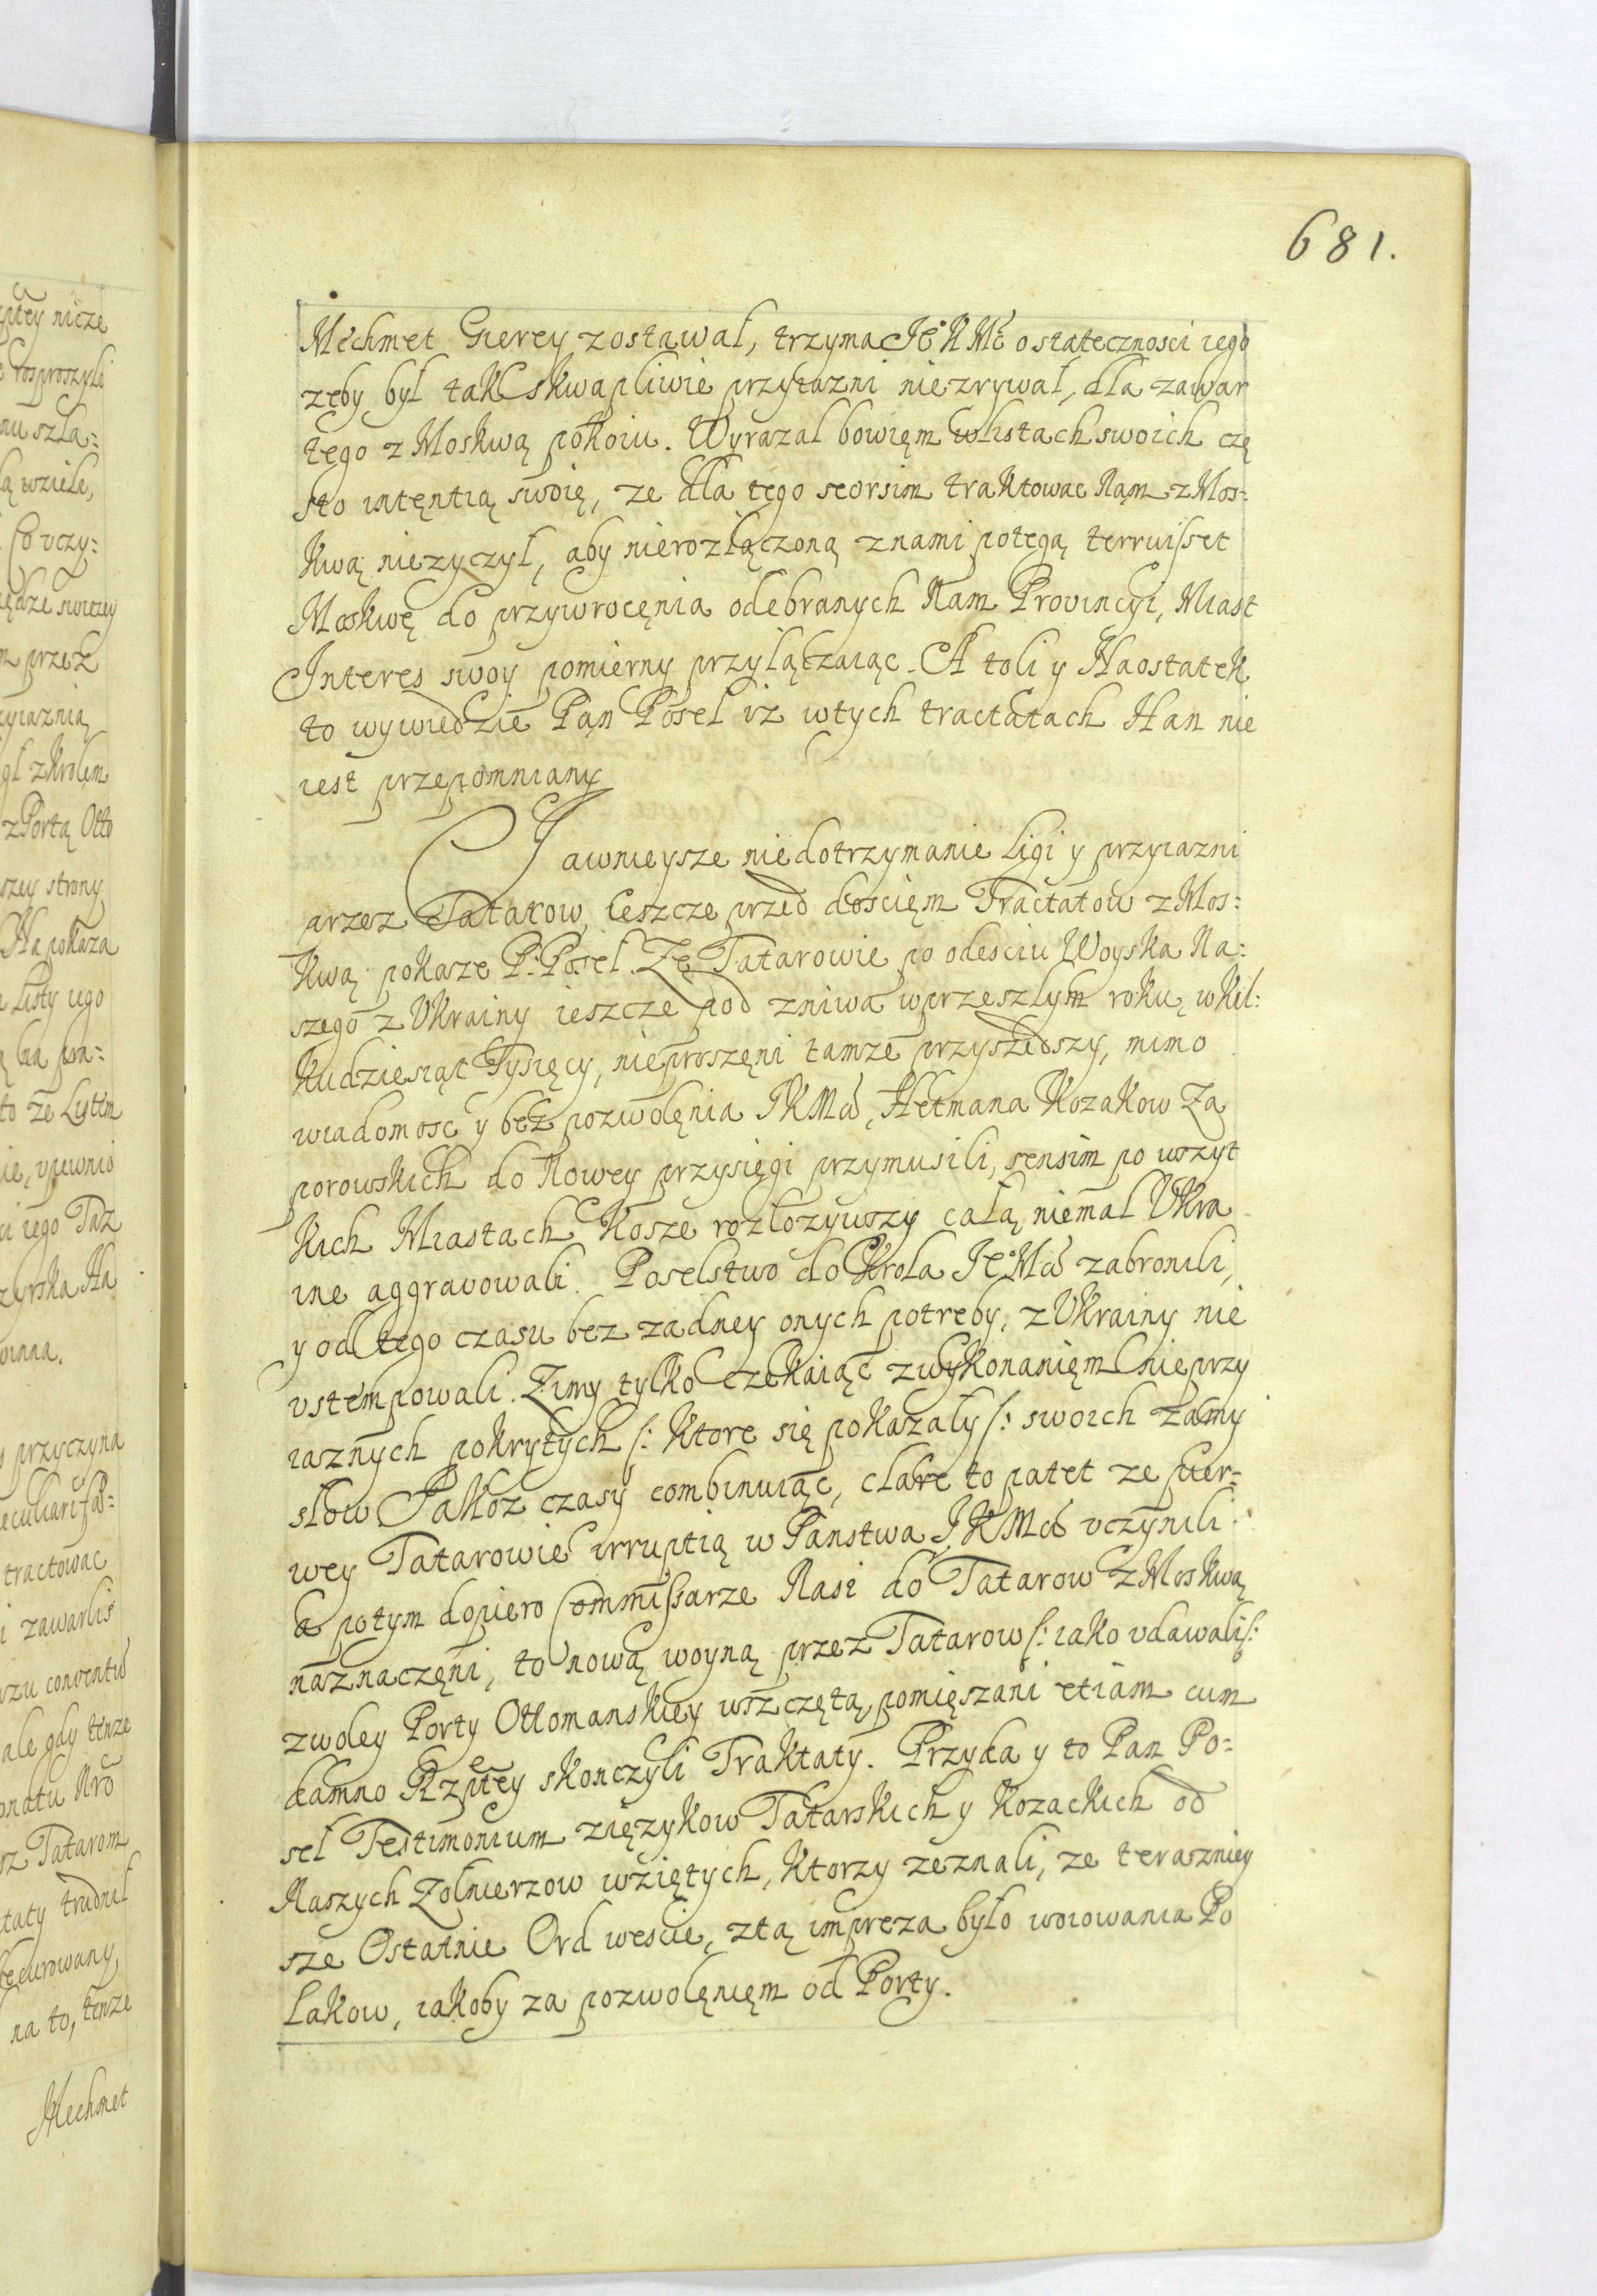 681.
Mechmet Gierey zostawał, trzyma JeKMć o stateczności iego
zeby był tak skwapliwie przyiazni nie zrywał, dla zawar
tego z Moskwą pokoiu. Wyrazał bowięm wlistach swoich czę
sto intęntią swoię, ze dla tego seorsim traktować Nąm z Mos=
kwą niezyczył, aby nierozłączoną znami potęgą terruisset
Moskwę do przywrocęnia odebranych Nam Prowincyi, Miast
Interes swoy pomierny przyłączaiąc. A toli y Naostatek
to wywiedzie Pan Poseł iż wtych tractatach Han nie
iest przepomniany
Jawnieysze niedotrzymanie Ligi y przyiazni
przez Tatarow, Ieszcze przed doscięm Tractatow z Mos=
kwą pokaze P. Poseł. Ze Tatarowie po odesciu Woyska Na=
szego z Ukrainy ieszcze pod zniwa wprzeszłym roku, wkil=
kudziesiąt Tysięcy, nieproszęni tamze przyszedszy, mimo
wiadomosc y bez pozwolęnia JKMci, Hetmana Kozakow Za
porowskich do Nowey przysięgi przymusili, sensim po wszyt
kich Miastach Kosze rozłozywszy całą niemal Ukra
inę aggravowali. Poselstwo do Krola JeMci zabronili,
y od tego czasu bez zadney onych potreby, z Ukrainy nie
ustempowali. Zimy tylko czekaiąc zwykonanięm nieprzy
iaznych pokrytych /: ktore się pokazały /: swoich zamy
słow Jakoz czasy combinuiąc, clare to patet ze pier=
wey Tatarowie irruptią w Panstwa JKMci uczynili
a potym dopiero Commissarze Nasi do Tatarow z Moskwą
naznaczęni, to nową woyną przez Tatarow /: iako udawali /:
zwoley Porty Ottomanskiey wszczętą, pomięszani etiam cum
damno Rzptey skonczyli Traktaty. Przyda y to Pan Po=
seł Testimonium zięzykow Tatarskich y Kozackich od
Naszych Zołnierzow wziętych, ktorzy zeznali, ze terazniey
sze Ostatnie Ord wescie, ztą impreza było woiowania Po
lakow, iakoby za pozwolęnięm od Porty.